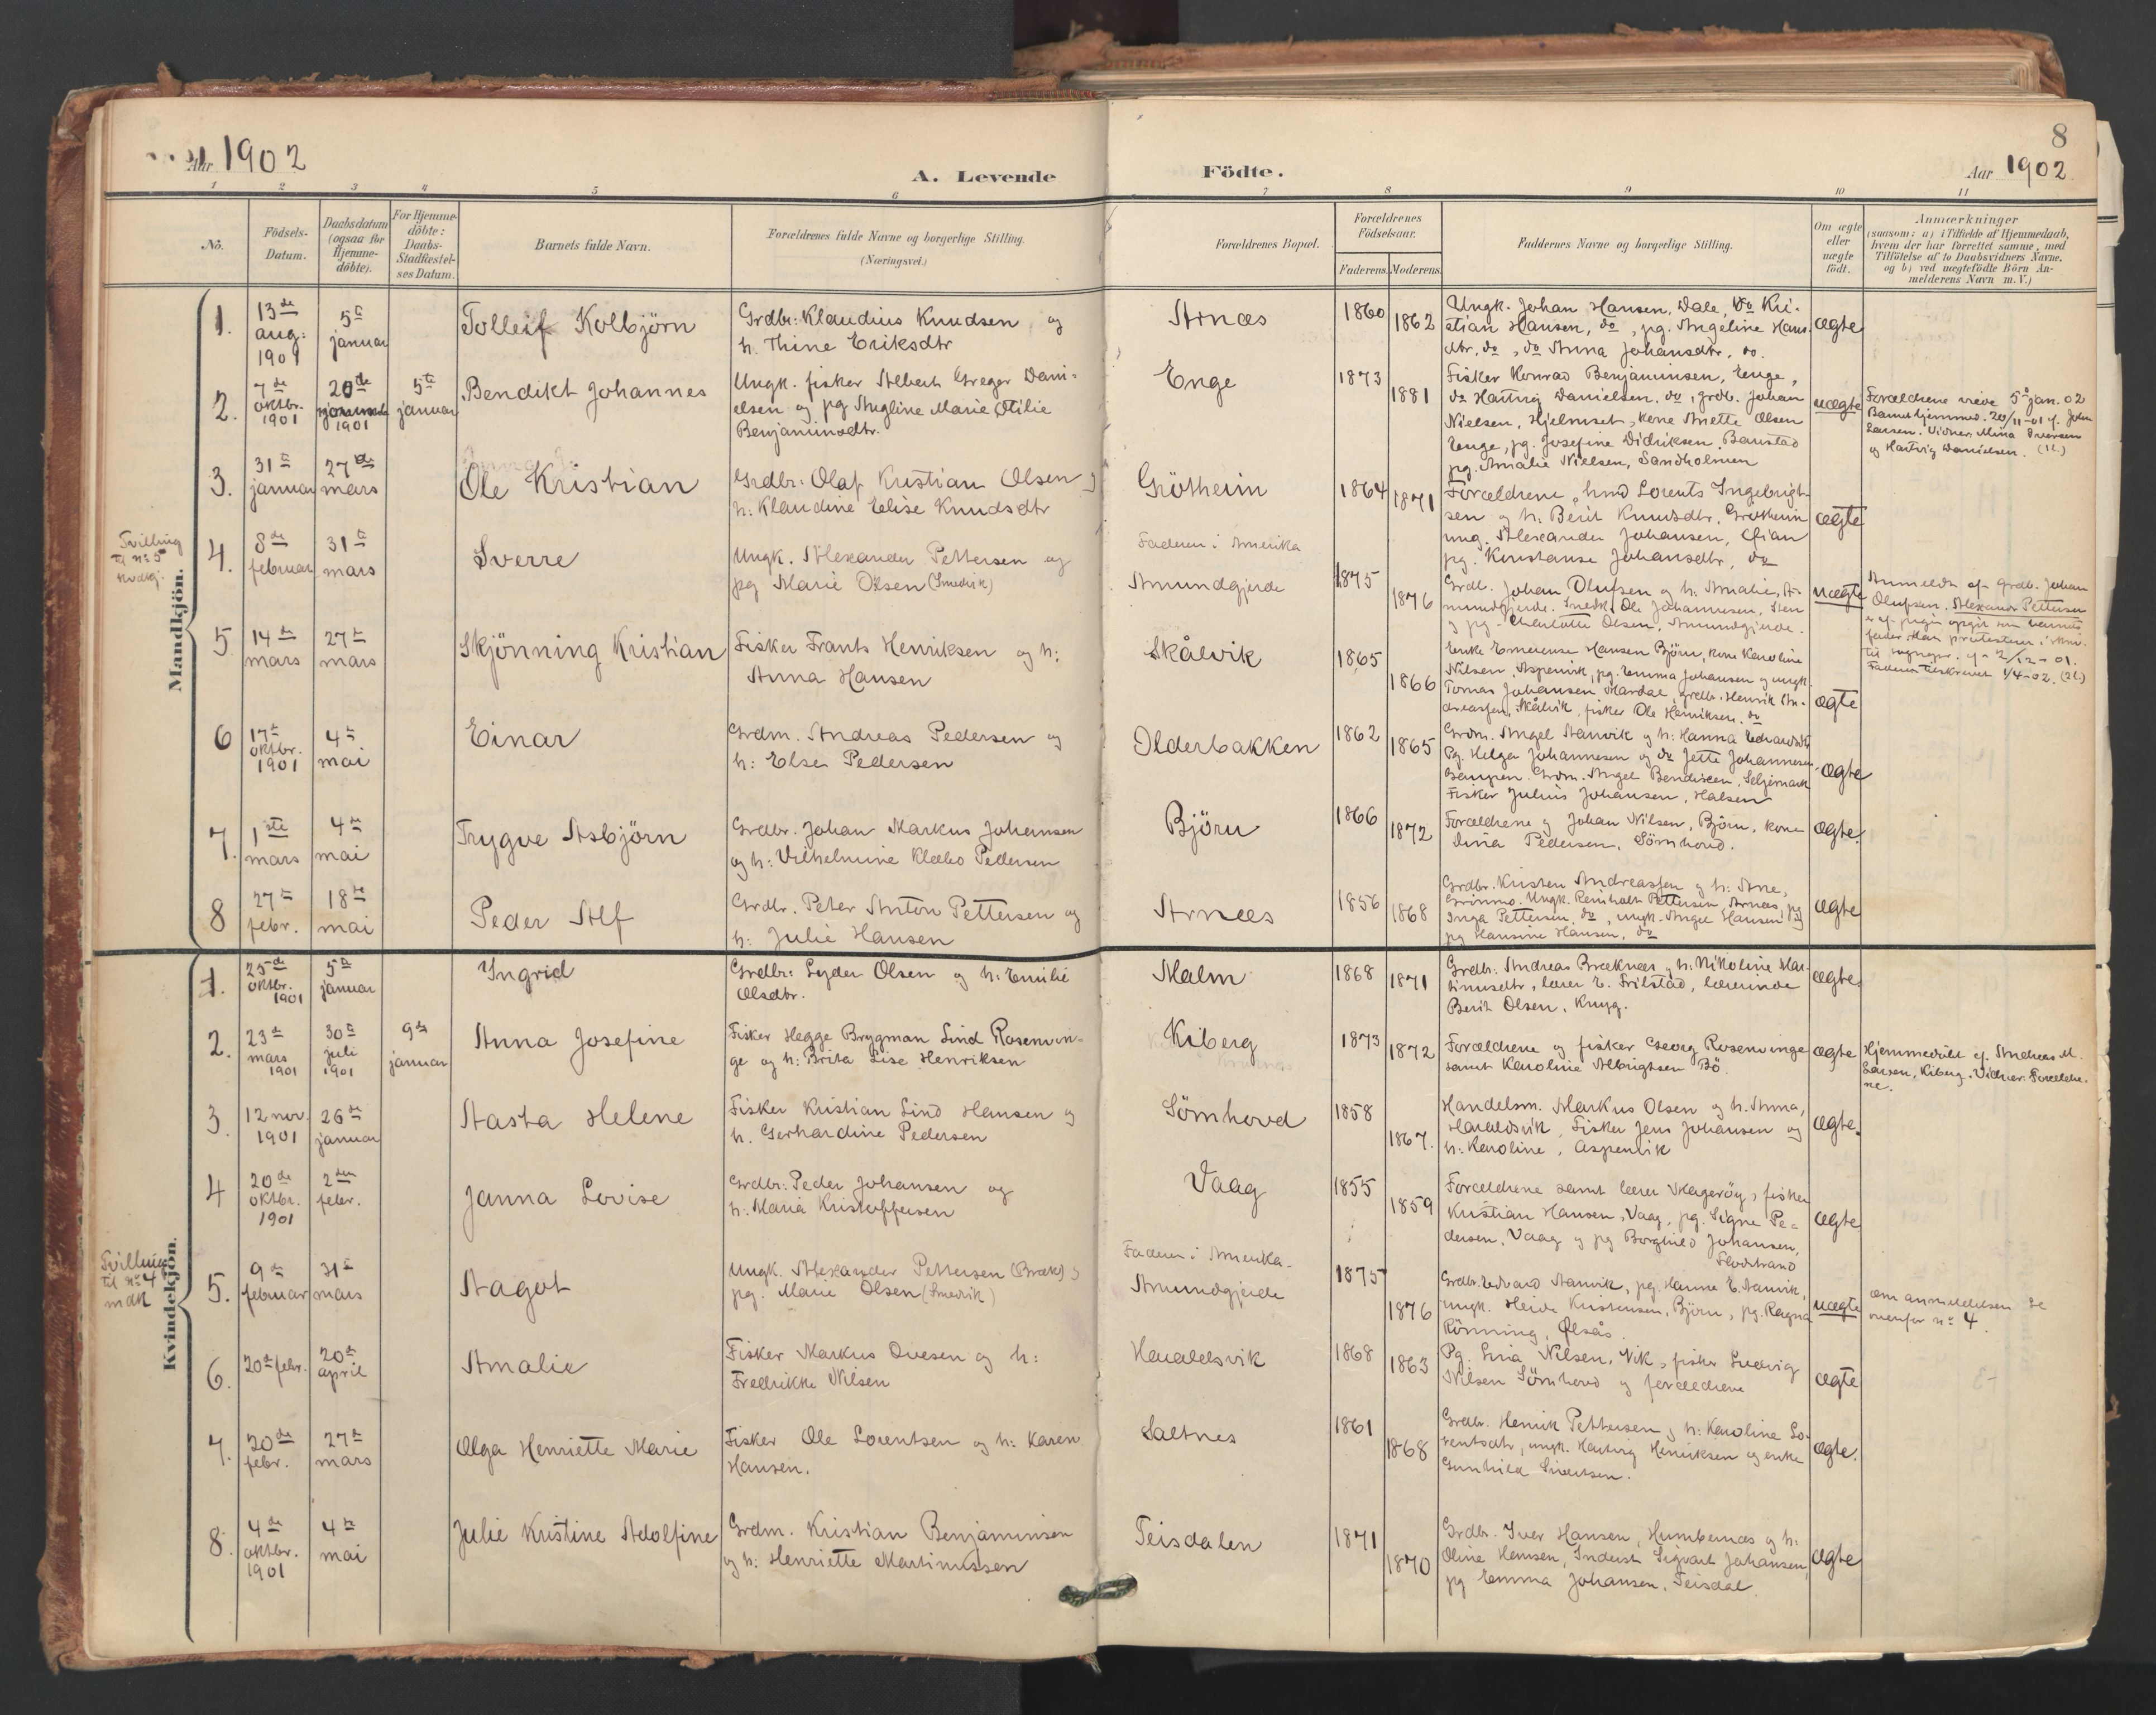 Aar 1902
A. Levende
Födte.
8
Aar 1902
1
2
3
4
5
6
7
8
9
10
11
No.
Födsels-
Datum.
Daabsdatum
(ogsaa for
Hjemme-
döbte).
For Hjemme-
döbte:
Daabs-
Stadfæstel-
ses Datum.
Barnets fulde Navn.
Forældrenes fulde Navne og borgerlige Stilling.
(Næringsvei.)
Forældrenes Bopæl.
Forældrenes
Födselsaar.
Faderens.
Moderens.
Faddernes Navne og borgerlige Stilling.
Om ægte
eller
uægte
födt.
Anmærkninger
(saasom: a) i Tilfælde af Hjemmedaab,
hvem der har forrettet samme, med
Tilföielse af to Daabsvidners Navne.
og b) ved uægtefödte Börn An-
melderens Navn m. V.)
Mandkjön.
1.
13de
aug.
1901
5te
januar
Tolleif Kolbjörn
Grdbr: Klaudius Knudsen og
h. Thine Eriksdtr
Arnæs
1860
1862
Ungk. Johan Hansen, Dale, do Kri-
stian Hansen, do, pg. Angeline Hans-
dtr, do, do Anna Johansdtr, do.
ægte
2.
7de
oktbr.
1901
20de
1901
5te
januar
Bendikt Johannes
Ungk. fisker Albert Greger Dani-
elsen og pg Angline Marie Otilie
Benjaminsdtr.
Enge
1873
1881
Fisker Konrad Benjaminsen, Enge,
do Hartvig Danielsen, do, grdb. Johan
Nielsen, Hjelmset, kone Anette Olsen
Enge, pg. Josefine Didriksen, Banstad
pg. Amalie Nielsen, Sandholmen
uægte
Forældrene viede 5te jan. 02
Barnet hjemmed. 20/11-01 af John
Larsen. Vidner Mina Iversen
og Hartvig Danielsen. (H.)
3.
31te
januar
27de
mars
Ole Kristian
Grdbr: Olaf Kristian Olsen og
h. Klaudine Elise Knudsdtr
Grötheim
1864
1871
Forældrene, hmd Lorents Ingebrigt-
sen og h: Berit Knudsdtr, Grötheim
ung. Alexander Johansen,
pg. Konstanse Johansdtr, do
ægte
Tvilling
til no 5
kvdkj.
4.
8de
februar
31te
mars
Sverre
Ungk. Alexander Pettersen og
pg Marie Olsen (Smedvik)
Faderen i Amerika
Amundgjerde
1875
1876
Grdb. Johan Olufsen og h. Amalie, A-
mundgjerde. Snedk. Ole Johannesen, Sten
og pg. Charlotte Olsen, Amundgjerde.
uægte
Anmeldt af grdb. Johan
Olufsen. Alexander Pettersen
er af pigen opgit som barnets
fader. Han
til sognepr. af 2/12-01.
Faderen tilskrevet 1/4-02. (H.)
5
14de
mars
27de
mars
Skjönning Kristian
Fisker Frants Henriksen og h:
Anna Hansen
Skålvik
1865
1866
Enke Emerense Hansen Björn, kone Karoline
Nilsen, Aspenvik, pg. Emma Johansen og ungk.
Tomas Johansen Mardal, grdb. Henrik An-
dreassen, Skålvik, fisker Ole Henriksen, do
ægte
6
17de
oktbr.
1901
4de
mai
Einar
Grdm. Andreas Pedersen og
h: Else Pedersen
Olderbakken
1862
1865
Grdm. Angel Stamvik og h: Hanna Edvardsdtr
Pg. Helga Johannesen og do Jette Johannesen,
Grdm. Angel Bendiksen, Seljemark
Fisker Julius Johansen, Halsen
ægte
7.
1ste
mars
4de
mai
Trygve Asbjörn
Grdbr. Johan Markus Johansen
og h: Vilhelmine Kleebo Pedersen
Björn
1866
1872
Forældrene og Johan Nilsen, Björn, kone
Dina Pedersen, Sörnhovd.
ægte.
8
27de
febr.
18de
mai
Peder Alf
Grdbr. Peter Anton Pettersen og
h: Julie Hansen
Arnæs
1856
1868
Grdbr. Kristen Andreassen og h: Ane,
Grinmo. Ungk. Reinholt Pettersen Arnæs, pg
Inga Pettersen, do, ungk. Angel Hansen, do
pg Hansine Hansen, do
ægte
Kvindekjön.
1.
25de
oktbr.
1901
5te
januar
Ingrid
Grdbr: Lyder Olsen og h: Emilie
Olsdtr.
Malm
1868
1871
Grdbr: Andreas Bræknæs og h: Nikoline Mar-
tinusdtr, lærer E. Frilstad, lærerinde
Berit Olsen, Kryg.
ægte
2.
23de
mars
1901
30te
juli
1901
9de
januar
Anna Josefine
Fisker Hegge Brygman Lind Rosenvin-
ge og h: Brita Lise Henriksen
Kiberg
1873
1872
Forældrene og fisker Georg Rosenvinge
samt Karoline Albrigtsen Bö.
ægte
Hjemmedöbt af Andreas M.
Larsen, Kiberg. Vidner: Forældre-
ne.
3.
12 nov.
1901
26de
januar
Aasta Helene
Fisker Kristian Lind Hansen og
h. Gerhardine Pedersen
Sörnhovd
1858
1867.
Handelsm. Markus Olsen og h. Anna,
Haraldsvik, Fisker Jens Johansen og
h: Karoline, Aspenvik
ægte.
4
20de
oktbr.
1901
2den
febr.
Janna Lovise
Grdbr: Peder Johansen og
h: Maria Kristoffersen
Vaag
1855
1859
Forældrene samt lærer Mageröy, fisker
Kristian Hansen, Vaag, pg. Signe Pe-
dersen, Vaag og pg Borghild Johansen,
Flodstrand
ægte
Tvilling
til no 4
mdk
5.
9de
februar
31te
mars
Aagot
Ungk. Alexander Pettersen (Bræk) og
pg. Marie Olsen (Smedvik)
Faderen i Amerika.
Amundgjerde
1875
1876
Grdbr. Edvard Stamvik, pg. Hanne E. Stamvik,
ungk. Heide Kristensen, Björn, pg. Ragna
Rönning, Ølsås.
uægte
Om anmeldelsen se
ovenfor no 4.
6.
20de febr.
20de
april
Amalie
Fisker Markus Ovesen og h:
Fredrikke Nilsen
Haraldsvik
1868
1863
Pg. Lina Nilsen, Vik, fisker Ludvig
Nilsen Sörnhovd og forældrene
ægte
7.
20de
febr.
27de
mars
Olga Henriette Marie
Fisker Ole Lorentsen og h: Karen
Hansen.
Saltnes
1861
1868
Grdbr. Henrik Pettersen og h: Karoline Lo-
rentsdtr, ungk. Hartvig Henriksen og enke
Gunhild Sivertsen.
ægte.
8.
4de
oktbr.
1901
4de
mai
Julie Kristine Adolfine
Grdm. Kristian Benjaminsen
og h: Henriette Martinussen
Teisdalen
1871
1870
Grdbr. Iver Hansen, Humbernæs og h:
Oline Hansen, Inderst Sigvart Johansen,
pg Emma Johansen, Teisdal.
ægte